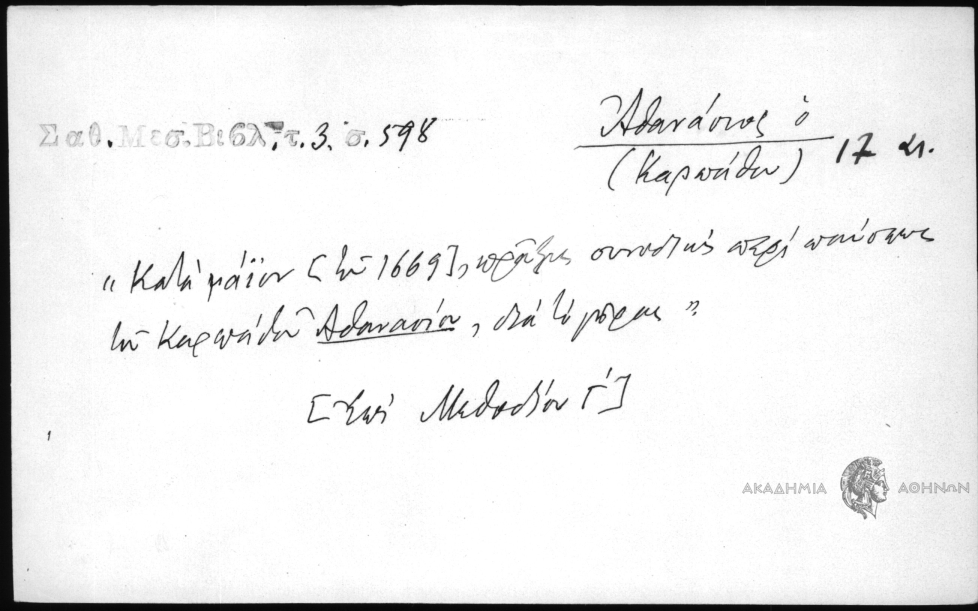 Σαθ. Μεσ. Βιβλ. τ. 3. σ. 598
Ἀθανάσιος ὁ
(Καρπάθου) 17 αι.
“Κατὰ μάϊον [τοῦ 1669], πρᾶξις συνοδικὴ περὶ παύσεως
τοῦ Καρπάθου Ἀθανασίου, διὰ τὸ γῆρας”
[Ἐπὶ Μεθοδίου Γ΄]
ΑΚΑΔΗΜΙΑ ΑΘΗΝΩΝ